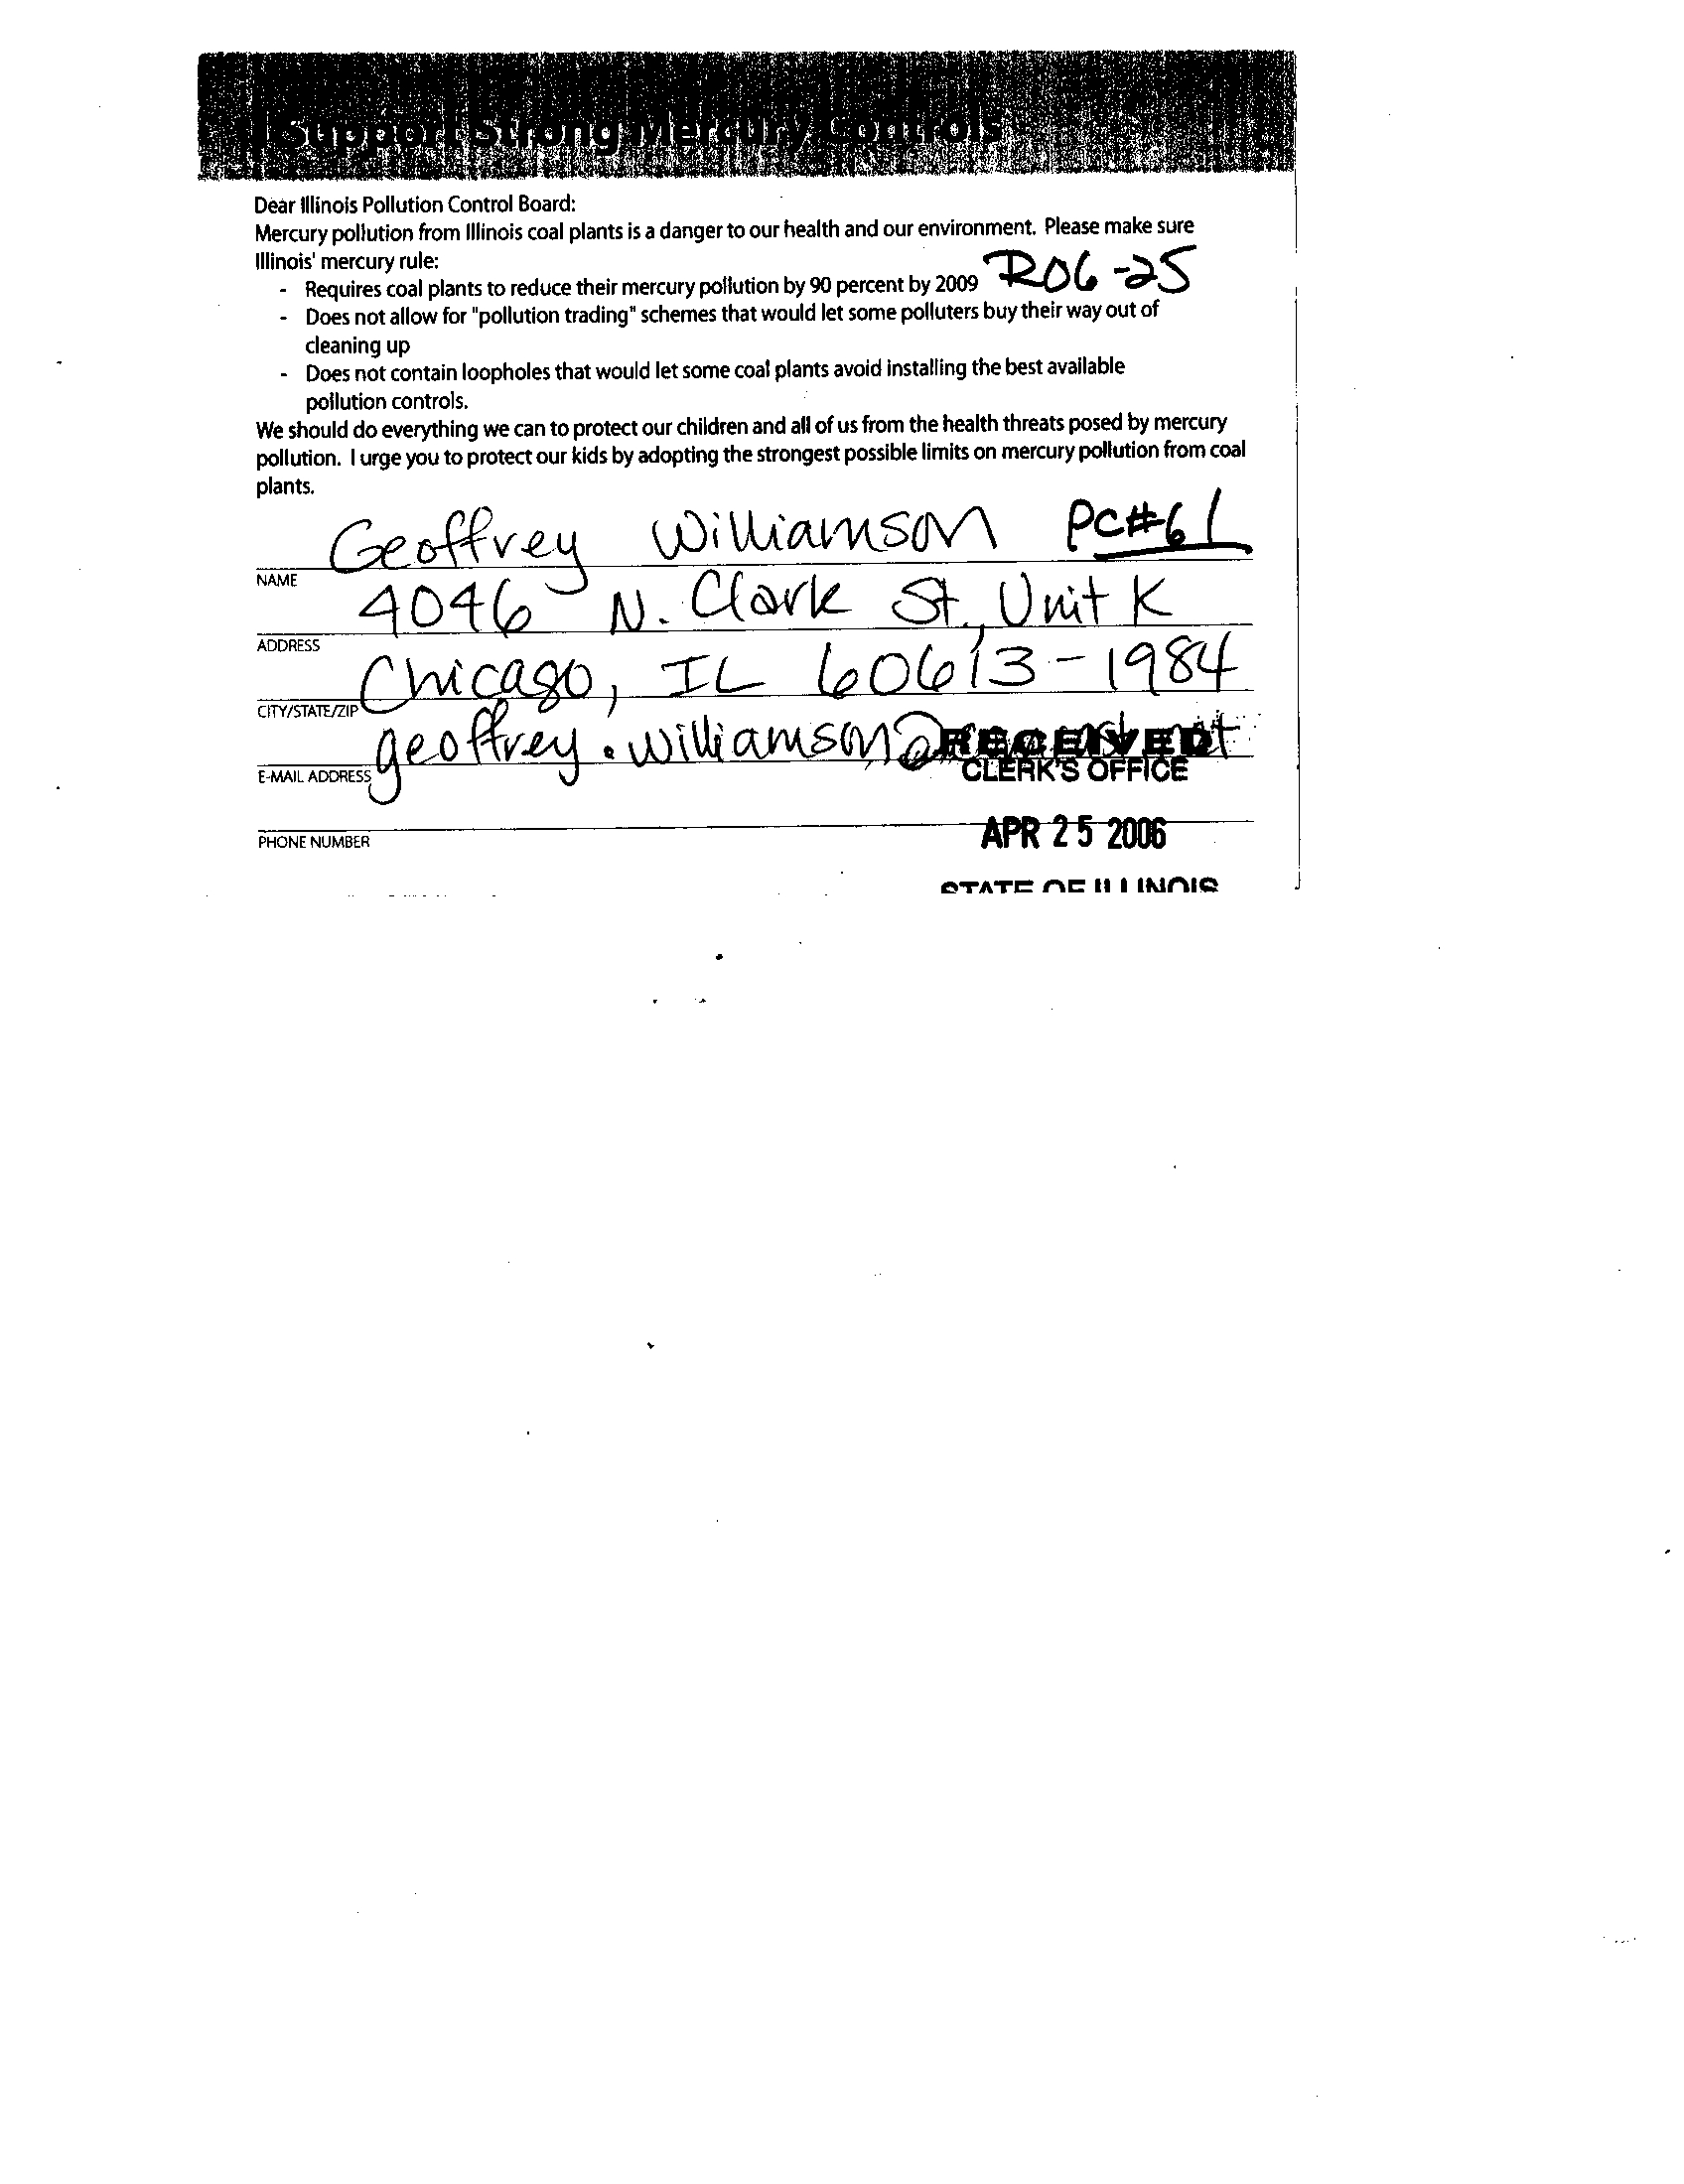 I Support Strong Mercury Controls
Dear Illinois Pollution Control Board:
Mercury pollution from Illinois coal plants is a danger to our health and our environment. Please make sure
Illinois' mercury rule:
- Requires coal plants to reduce their mercury pollution by 90 percent by 2009 R06-25
- Does not allow for "pollution trading" schemes that would let some polluters buy their way out of
cleaning up
- Does not contain loopholes that would let some coal plants avoid installing the best available
pollution controls.
We should do everything we can to protect our children and all of us from the health threats posed by mercury
pollution. I urge you to protect our kids by adopting the strongest possible limits on mercury pollution from coal
plants.
Geoffrey Williamson PC#61
NAME
4046 N. Clark St., Unit K
ADDRESS
Chicago, IL 60613-1984
CITY/STATE/ZIP
geoffrey.williamson@
RECEIVED
E-MAIL ADDRESS
CLERK'S OFFICE
APR 25 2006
PHONE NUMBER
STATE OF ILLINOIS